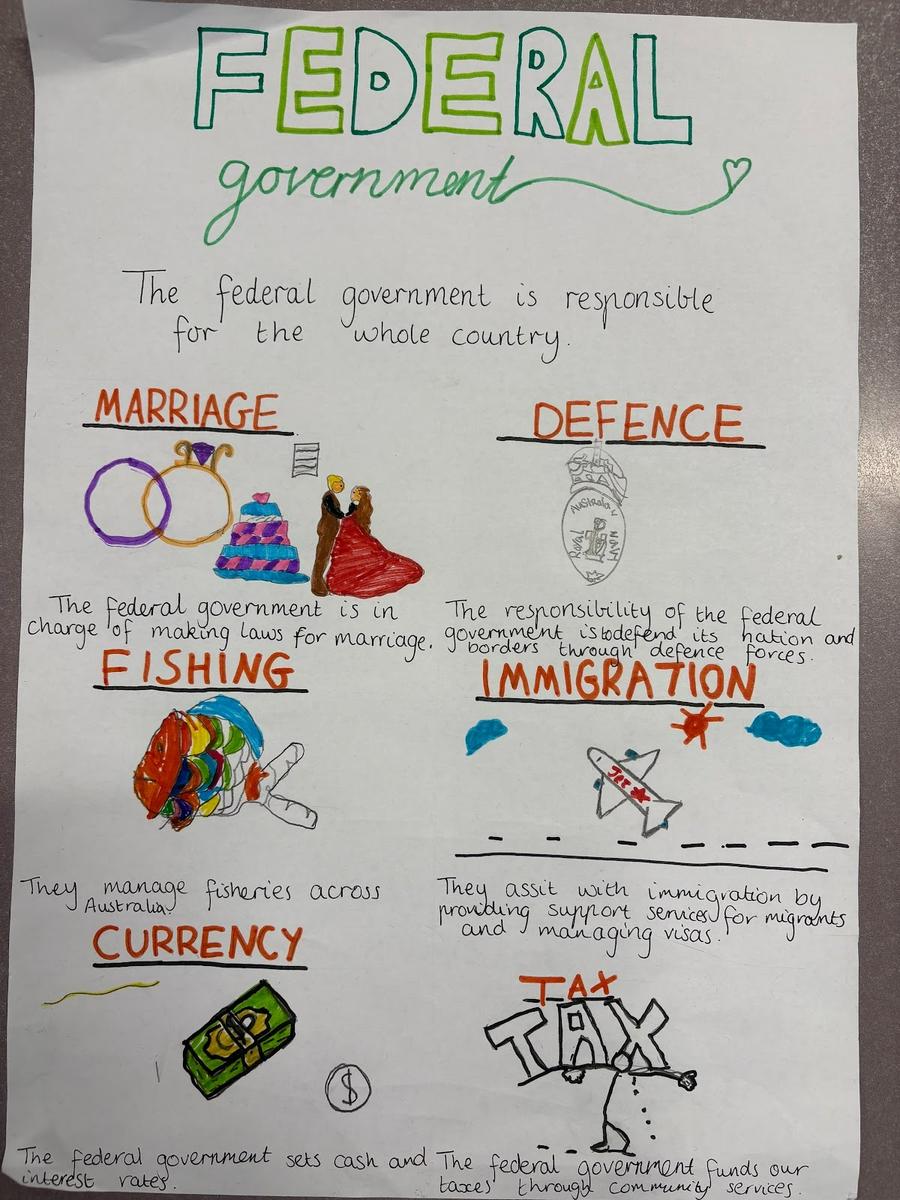 FEDERAL
government
The federal government is responsible
for the whole country.
MARRIAGE
The federal government is in
charge of making laws for marriage.
DEFENCE
Australian
Royal
Navy
The responsibility of the federal
government is to defend its nation and
borders through defence forces.
FISHING
They manage fisheries across
Australia.
IMMIGRATION
Jet
They assit with immigration by
providing support services for migrants
and managing visas.
CURRENCY
$
The federal government sets cash and
interest rates.
TAX
TAX
The federal government funds our
taxes through community services.